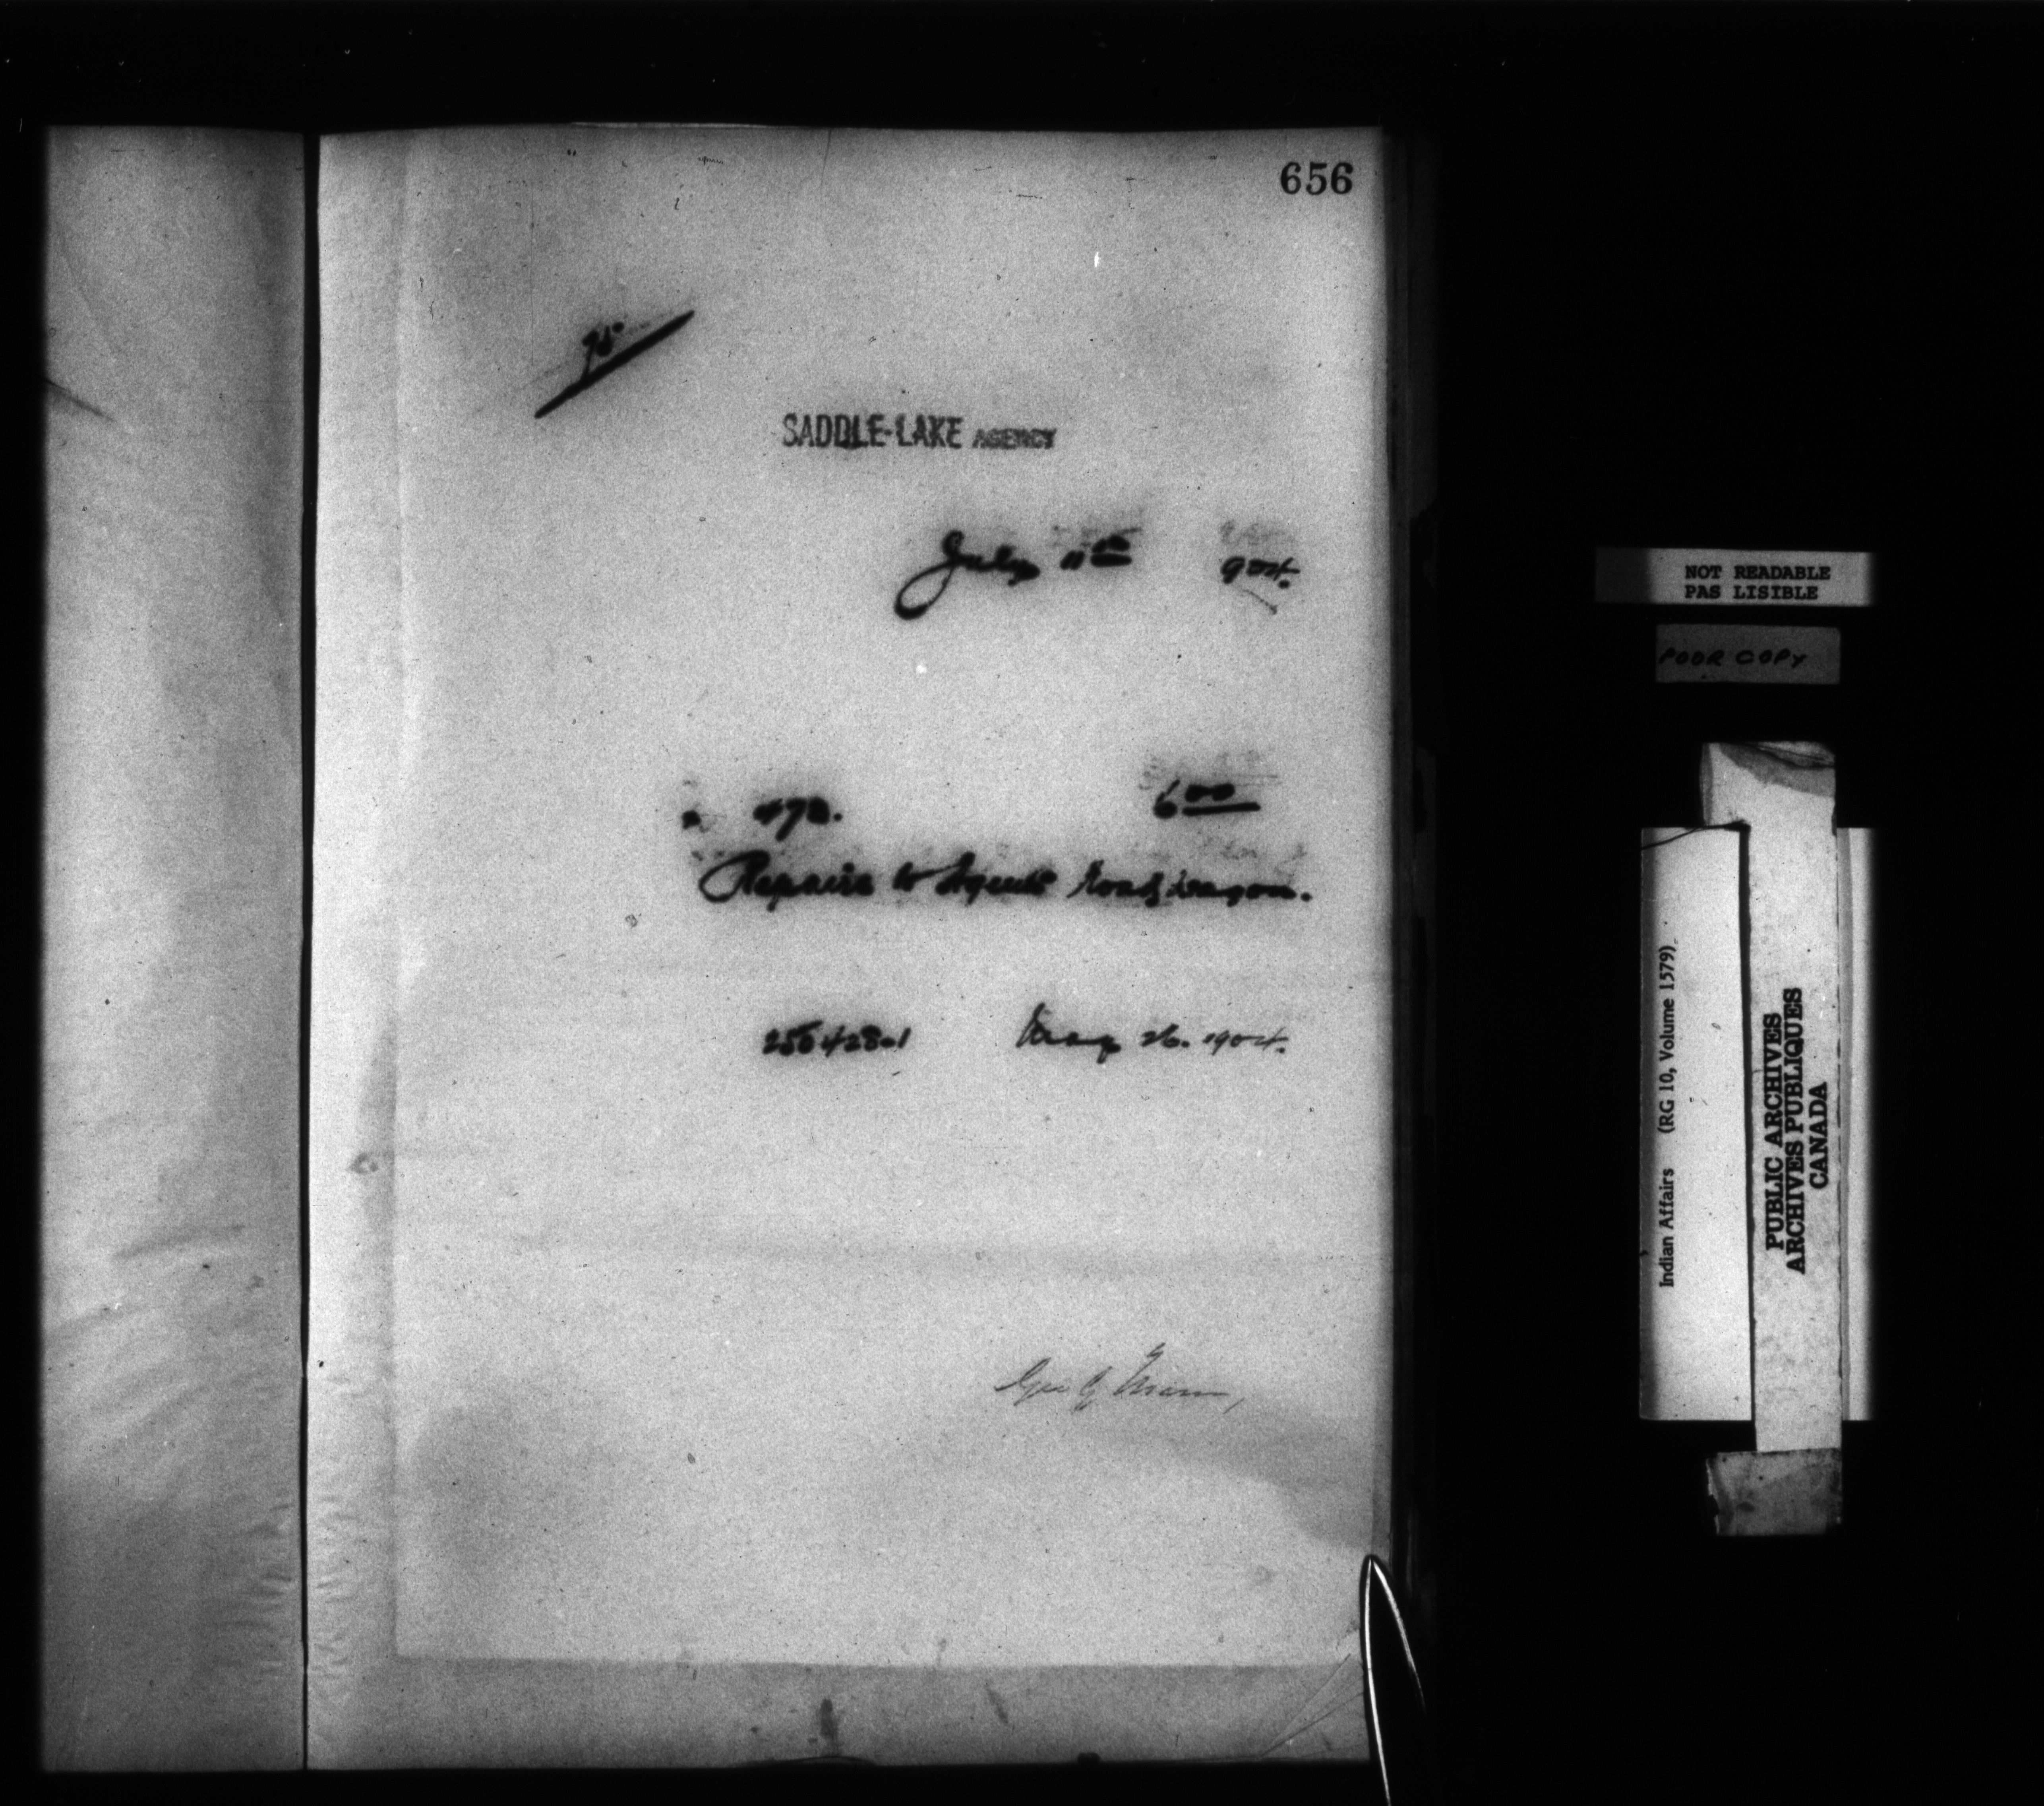 656
SADDLE-LAKE AGENCY
July 11th 904.
472. 6 00
Repairs to Agents road wagon.
256428-1 May 26. 1904.
Geo G Mann,
NOT READABLE
PAS LISIBLE
POOR COPY
Indian Affairs (RG 10, Volume 1579)
PUBLIC ARCHIVES
ARCHIVES PUBLIQUES
CANADA